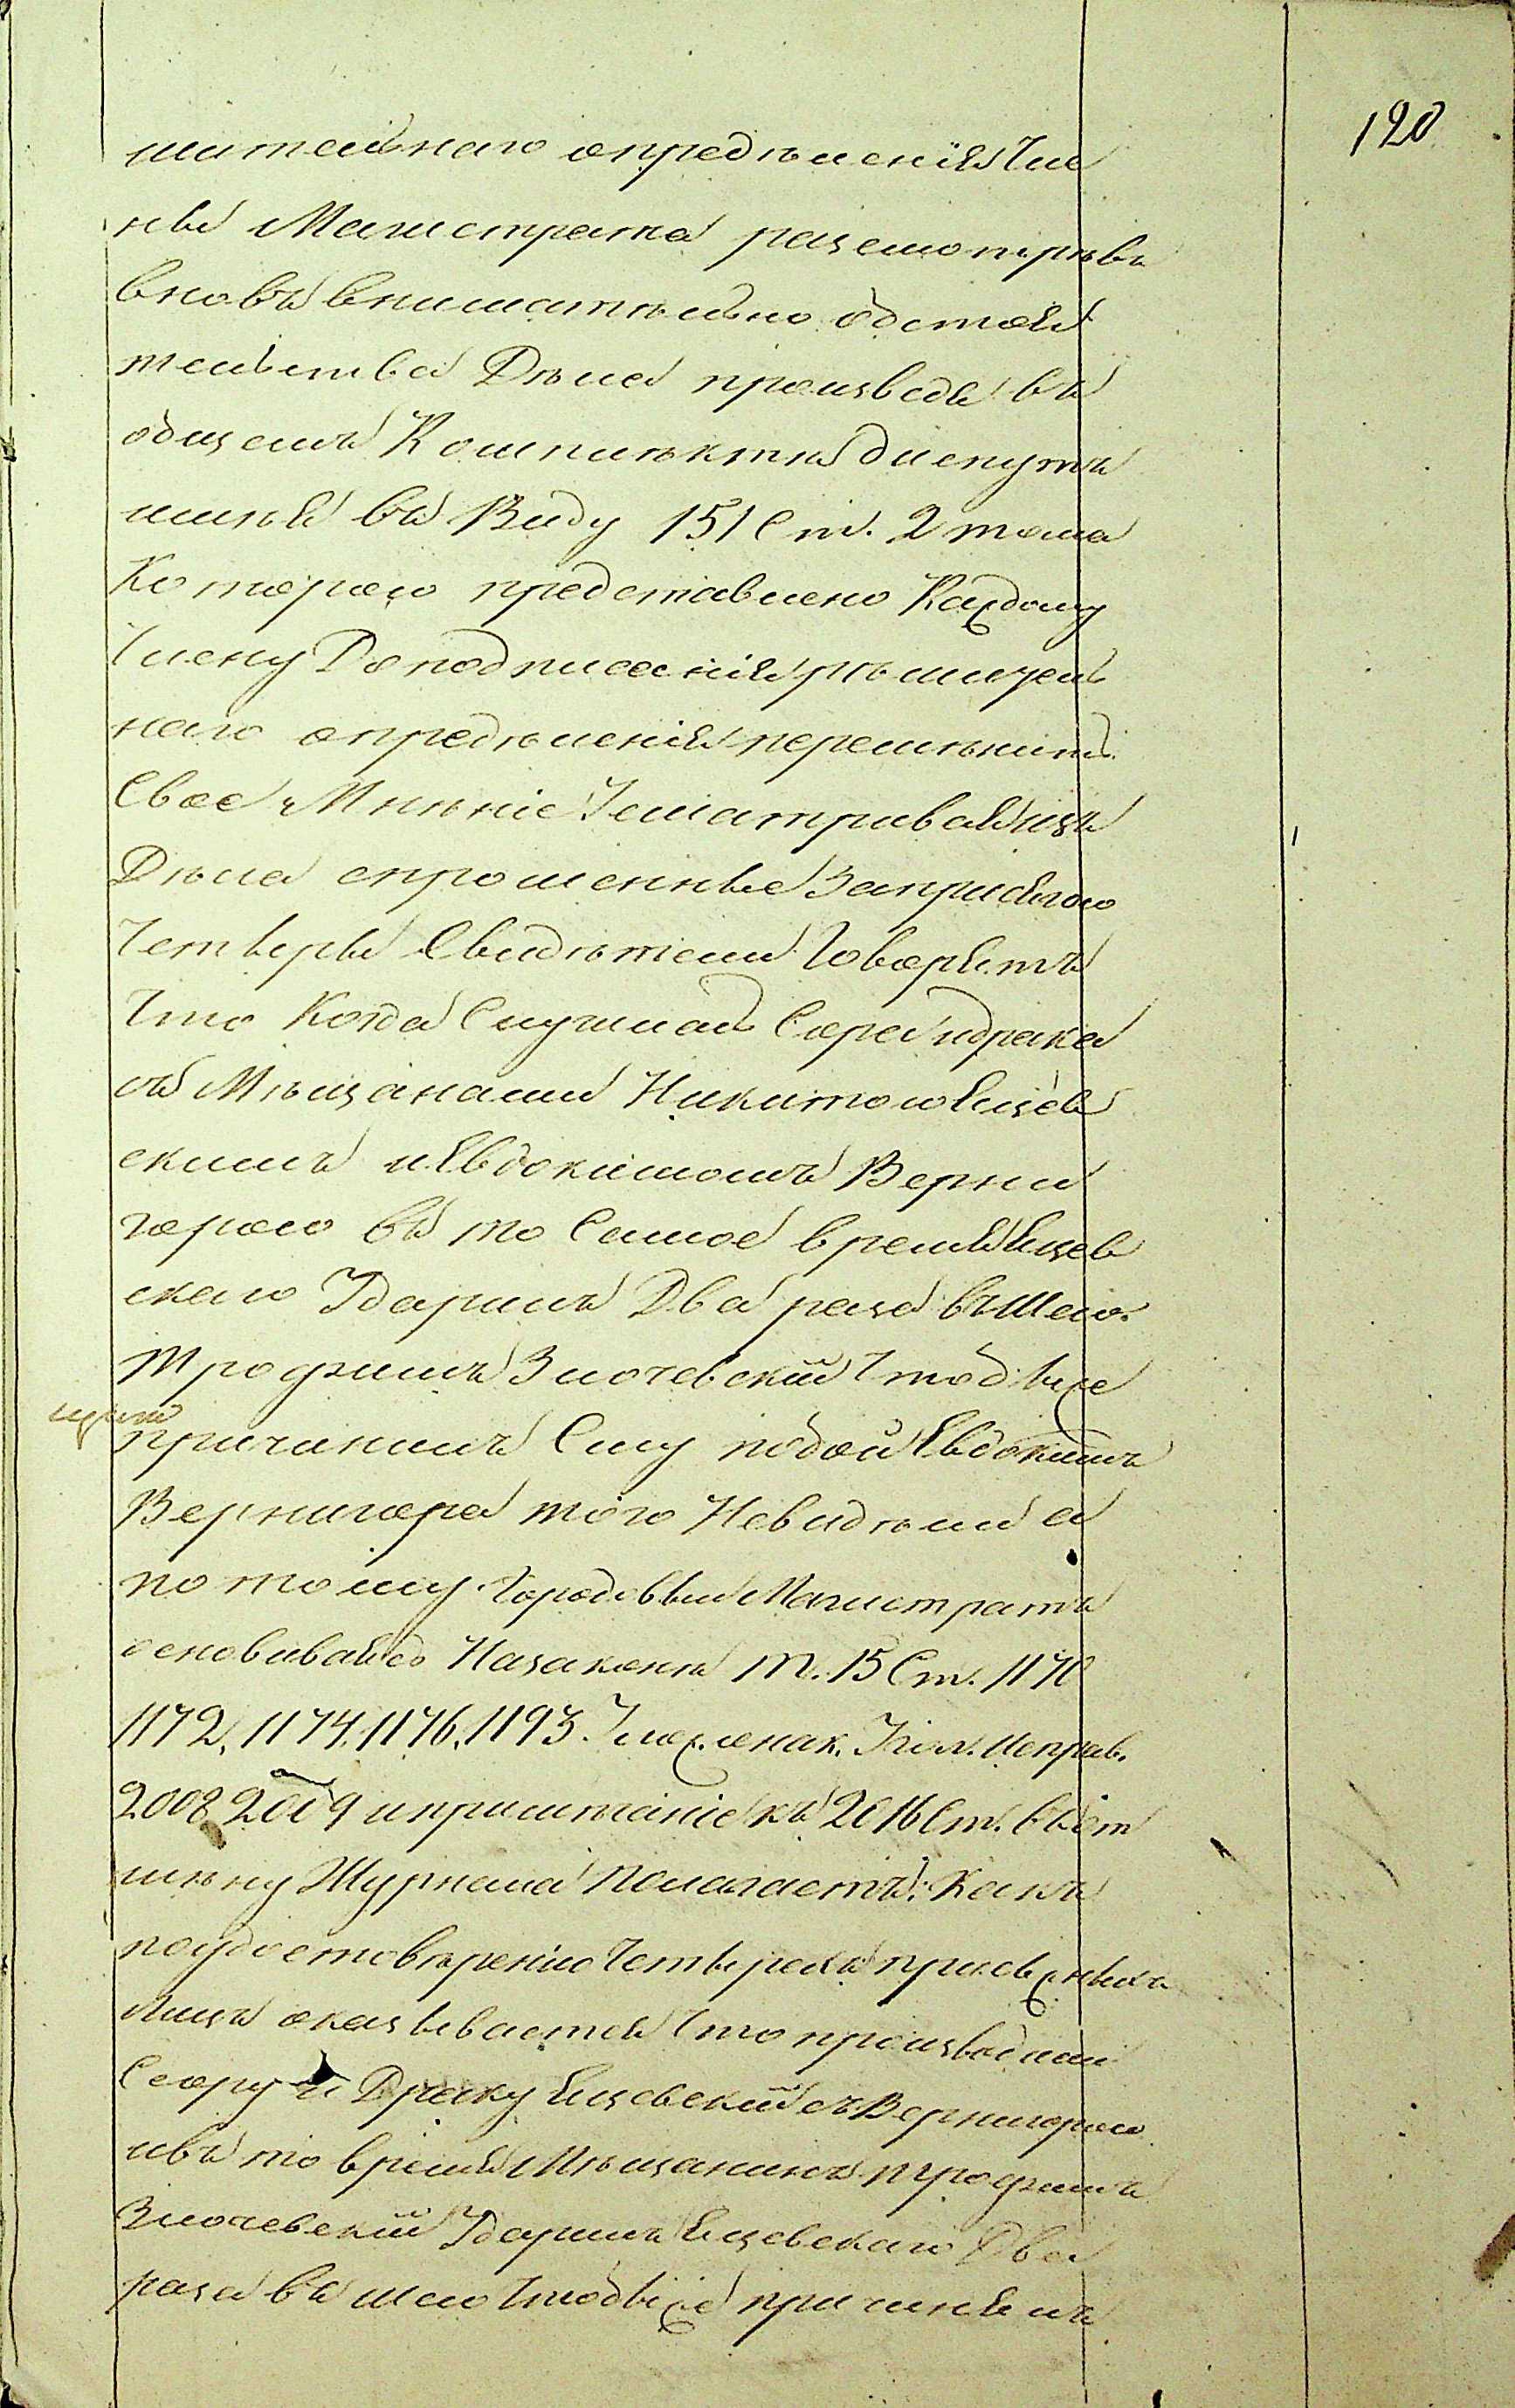 120
шительнаго опредѣленія Чле
ны Магистрата разсмотрѣвъ
вновь внимательно обстоя
тельства Дѣла произведя въ
общемъ Комплектѣ диспутъ
имѣя въ Виду 151 Ст. 2 тома
Которою представлено Каждому
Члену До подписанія рѣшитель
наго опредѣленія перемѣнить
Свое Мнѣніе Усматривая изъ
Дѣла спрошенные Заприсягою
Четыри Свидѣтели Говорятъ
Что Когда Случилась Сора идрака
съ Мѣщанами Никитою Ельцев
скимъ и Евдокимомъ Верни
горою въ то Самое время Ельцев
скаго Ударилъ Два раза въ Шею
Трофимъ Злочевскій Чтобы же
причинилъ Ему побои Евдокимъ
Вернигора того Невидѣли а
по тому Городовый Магистратъ
основываясь Назаконѣ Т. 15 Ст. 1170
1172, 1174, 1176, 1193. Улож. онак. Угол. Исправ.
2008 2009 и примѣчаніе къ 2016 Ст. въ от
мѣну Журнала Полагаетъ: Какъ
поудостовѣренію Четырехъ присяжныхъ
лицъ оказывается Что производили
Сору и Драку Ельцевскій съ Вернигорою
ивъ то время Мѣщанинъ Трофимъ
Злочевскій Ударилъ Ельцевскаго Два
раза въ шею Чтобы же причинялъ